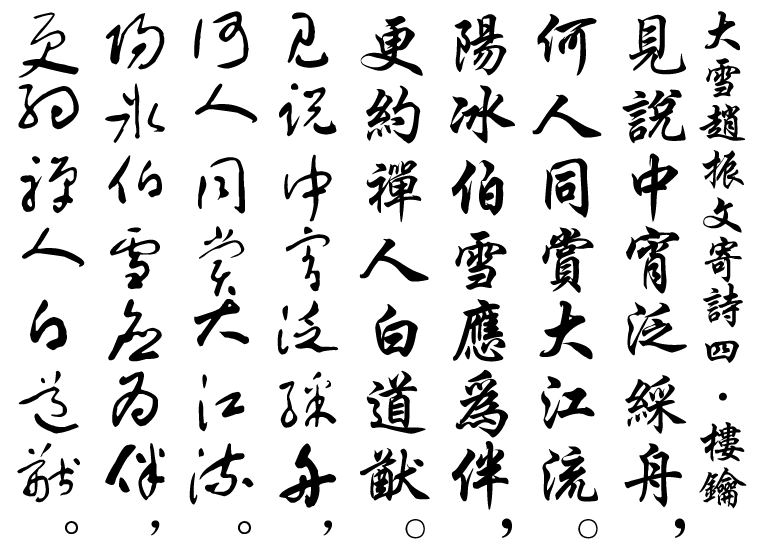 大雪趙振文寄詩四·樓鑰
見說中宵泛綵舟，
何人同賞大江流。
陽冰伯雪應為伴，
更約禪人白道猷。
见说中宵泛綵舟，
何人同赏大江流。
阳冰伯雪应为伴，
更约禅人白道猷。